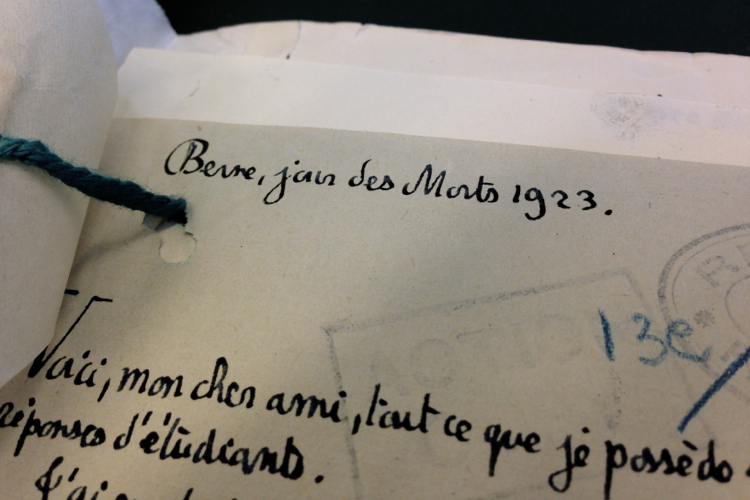 Berne, jour des Morts 1923.
13e/
Voici, mon cher ami, tout ce que je possède
réponses d'étudiants.
J'ai